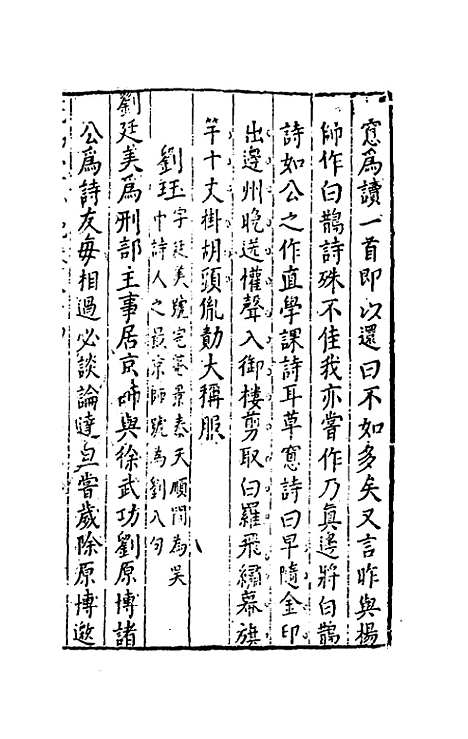 窓爲讀一首即以還曰不如多矣又言昨與楊
師作白鵲詩殊不佳我亦嘗作乃眞邊將白鵲
詩如公之作直學課詩耳草窓詩曰早隨金印
出邊州晚送懽聲入御樓剪取白羅飛繡幕旗
竿十丈掛胡頭胤勣大稱服
劉珏字廷美號完菴景泰天順間為吴
中詩人之最京師號為劉八句
劉廷美爲刑部主事居京師與徐武功劉原博諸
公爲詩友每相過必談論達旦嘗歲除原博邀